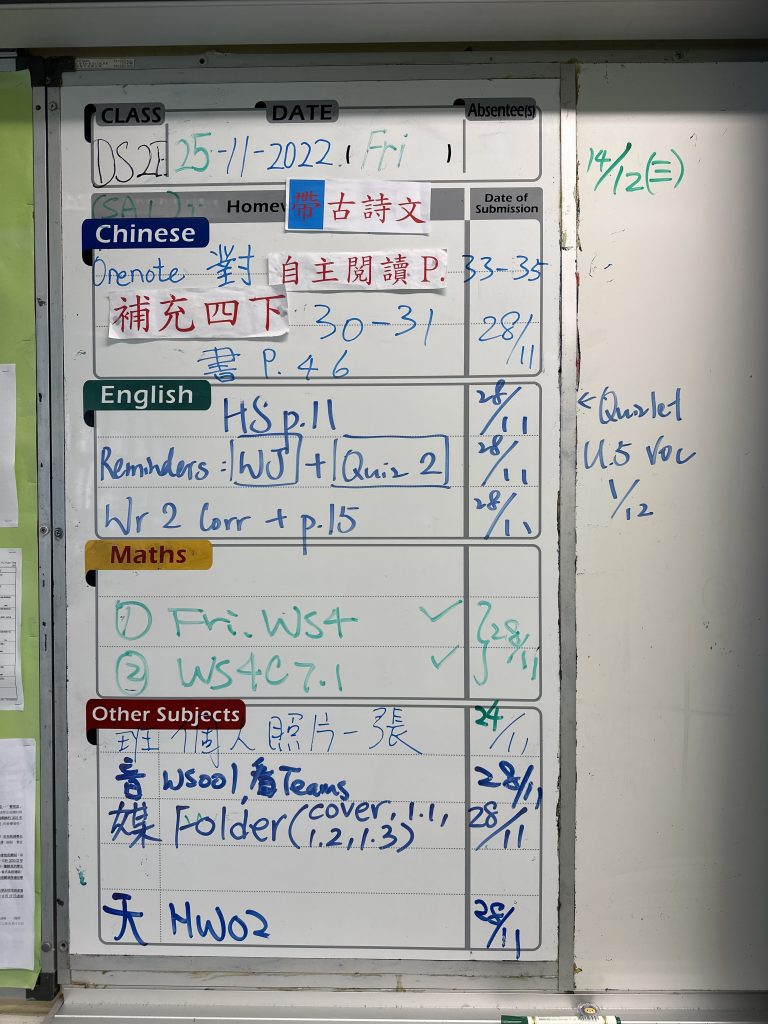 CLASS DATE Absentee(s)
DS2E 25-11-2022 ( Fri )
14/12(三)
(SA1): Homew 帶古詩文 Date of Submission
Chinese
Onenote 對 自主閱讀 P. 33-35
補充四下 30-31 28/11
書 P. 46
English
HS p.11 28/11
← Quizlet
U.5 voc
1/12
Reminders: WJ + Quiz 2 28/11
Wr 2 Corr + p.15 28/11
Maths
① Fri. WS4 ✓ } 28/11
② WS4C7.1 ✓
Other Subjects
班 個人照片一張 24/11
音 WS001, 看Teams 28/11
媒 Folder(cover, 1.1, 1.2, 1.3) 28/11
天 HW02 28/11